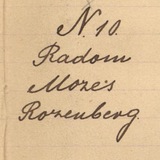 N 10.
Radom
Mozes
Rozenberg.